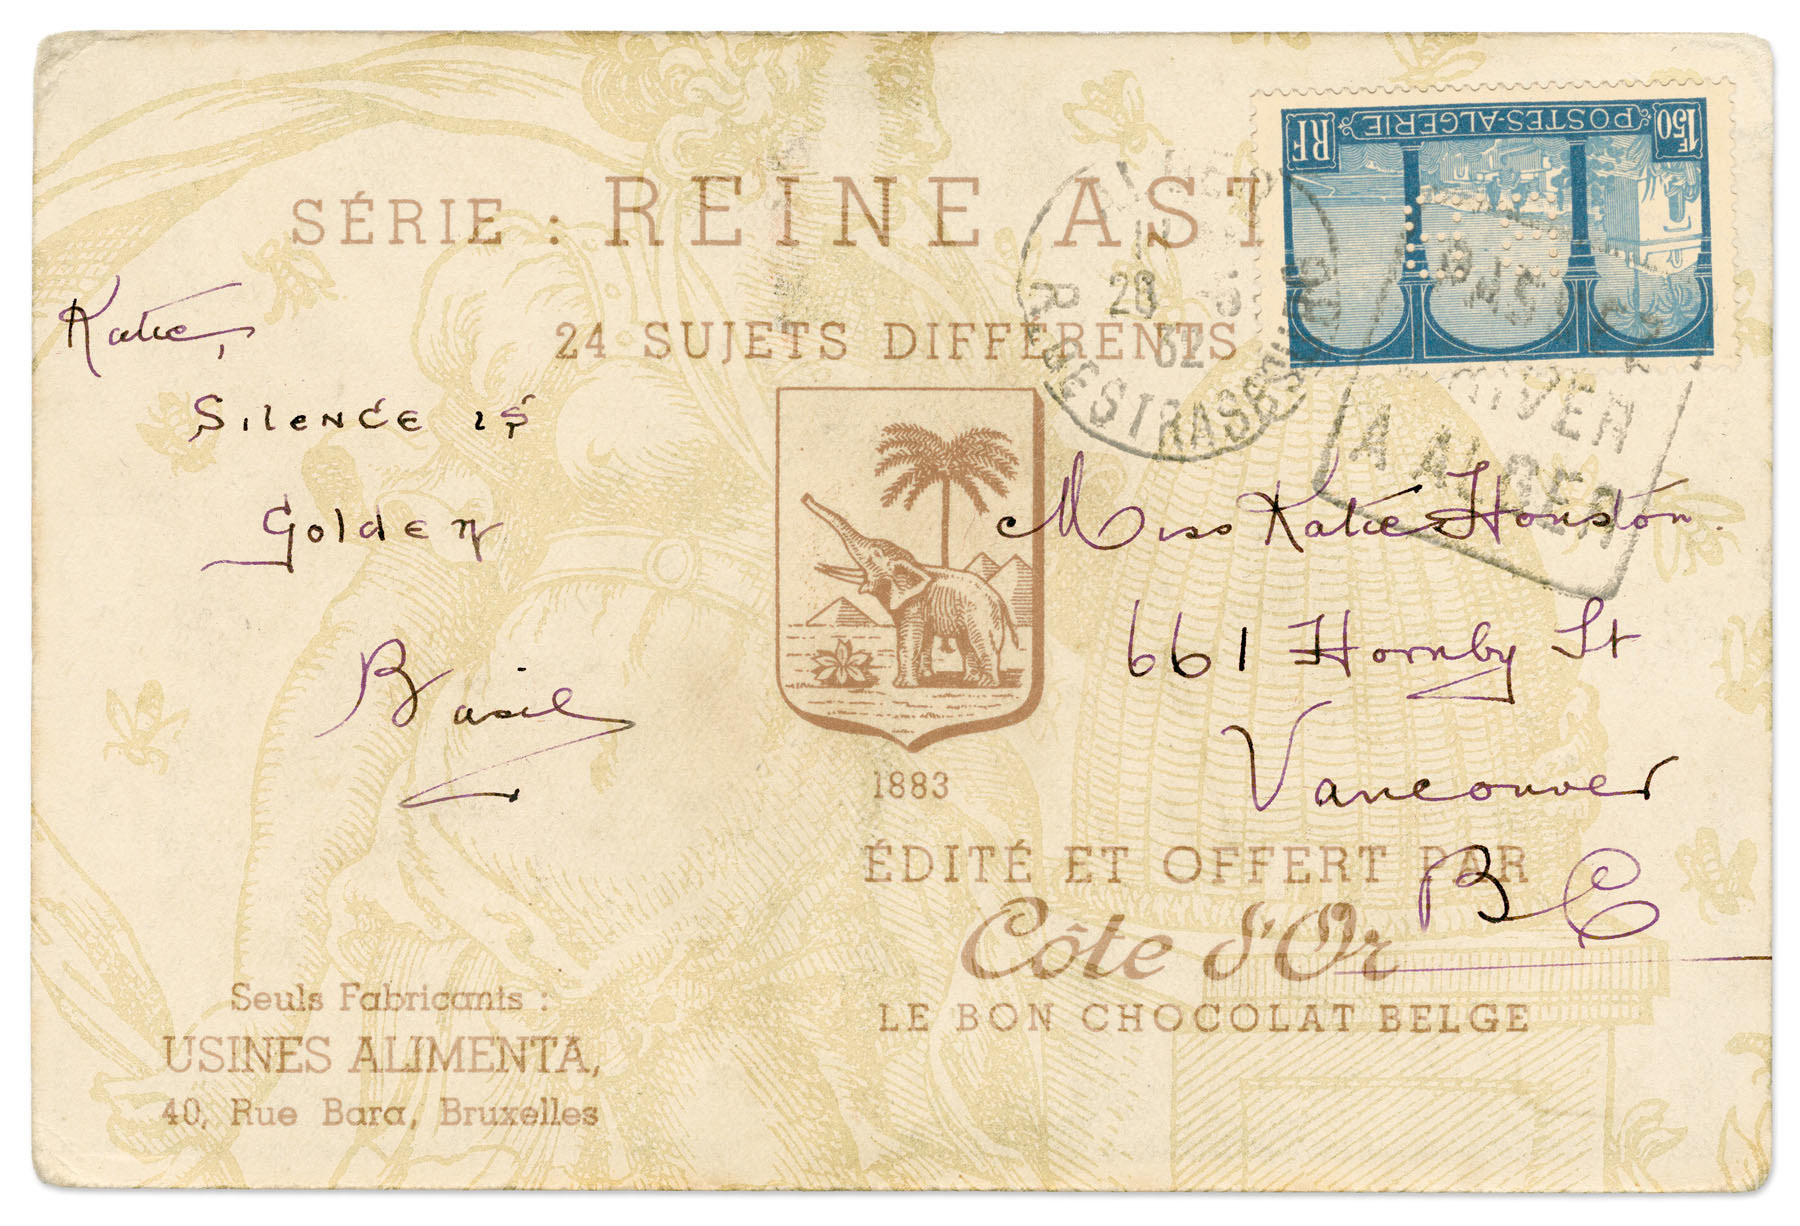 SÉRIE : REINE AST
24 SUJETS DIFFERENTS
1F50
POSTES-ALGERIE
RF
28
32
R. DE STRASBOURG
HIVER
A ALGER
Katie,
Silence is
Golden
Basil
Miss Katie Houston.
661 Hornby St
Vancouver
B C
1883
ÉDITÉ ET OFFERT PAR
Côte d'Or
LE BON CHOCOLAT BELGE
Seuls Fabricants :
USINES ALIMENTA,
40, Rue Bara, Bruxelles